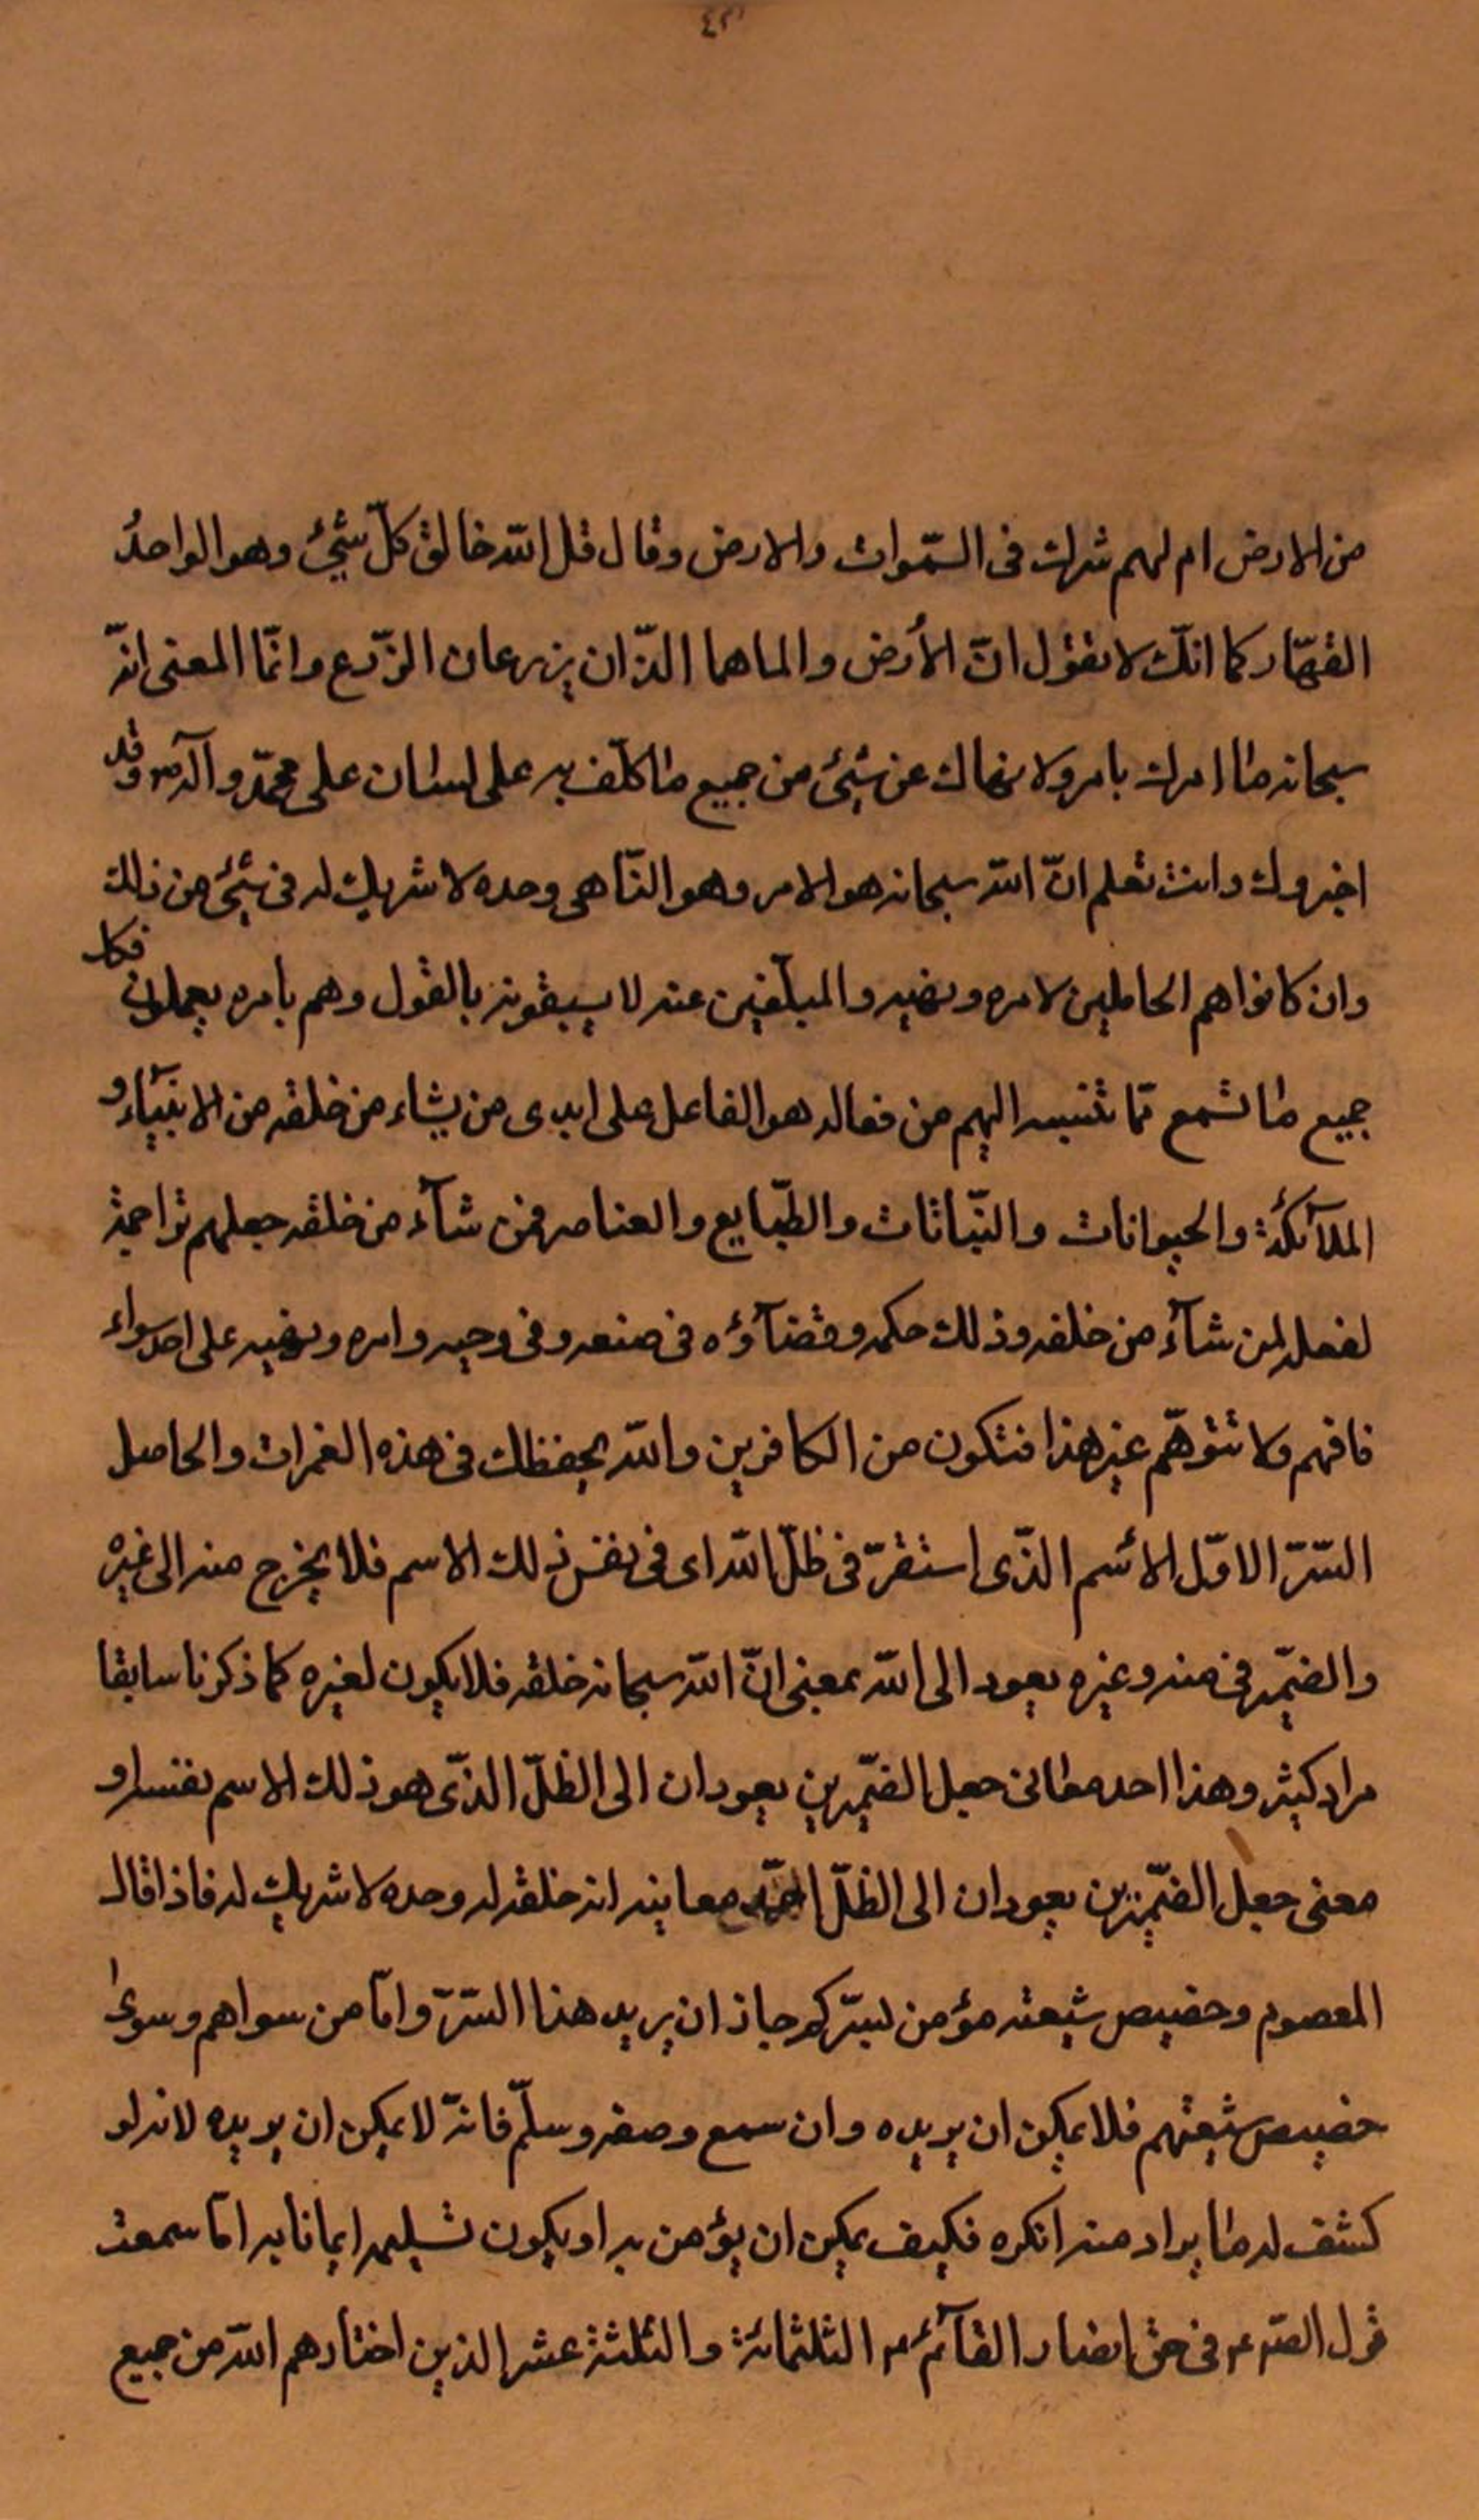 من الارض ام لهم شرك فى السّموات والارض وقال قل الله خالق كلّ شيئ وهو الواحدُ
القهّار كما انّك لا تقول انّ الأرض والما هما الذّان يزرعان الزّرع وانّما المعنى انّه
سبحانه ما امرك بامر ولا نهاك عن شيئ من جميع ما كلّف به على لسان على محمّد وآله ص وقد
اخبروك وانت تعلم انّ الله سبحانه هو الامر وهو النّاهى وحده لا شريك له فى شيئ من ذلك
وان كانوا هم الحاملين لامره ونهيه والمبلّغين عنه لا يسبقونه بالقول وهم بأمره يعملون فكل
جميع ما تسمع ممّا تنسبه اليهم من فعاله هو الفاعل على ايدى من يشاء من خلقه من الانبيآء و
الملآئكة والحيوانات والنّباتات والطّبايع والعناصر فمن شآء من خلقه جعلهم تراجمة
لفعله لمن شآء من خلقه وذلك حكمه وقضآؤه فى صنعه وفى وحيه وامره ونهيه على احد سواء
فافهم ولا تتوهّم غير هذا فتكون من الكافرين والله يحفظك فى هذه الغمرات والحاصل
السّرّ الاوّل الأسم الذّى استقرّ فى ظلّ الله اى فى نفس ذلك الاسم فلا يخرج منه الى غيره
والضّمير فى منه وغيره يعود الى الله بمعنى انّ الله سبحانه خلقه فلا يكون لغيره كما ذكرنا سابقا
مراد كثير وهذا احد معانى جعل الضّميرين يعودان الى الظلّ الذّى هو ذلك الاسم نفسه او
معنى جعل الضّميرين يعودان الى الظلّ معاينه انه خلقه له وحده لا شريك له فاذا قال
المعصوم وخصيص شيعته مؤمن بسرّكم جاز ان يريد هذا السّرّ وامّا من سواهم وسوى
خصيص شيعتهم فلا يمكن ان يريده وان سمع وصفه وسلّم فانّه لا يمكن ان يريده لانه لو
كشف له ما يراد منه انكره فكيف يمكن ان يؤمن به او يكون تسليمه ايمانا به امّا سمعت
قول الصّ ع فى حق انصار القآئم ع الثلثمائة والثلثة عشر الذين اختارهم الله من جميع